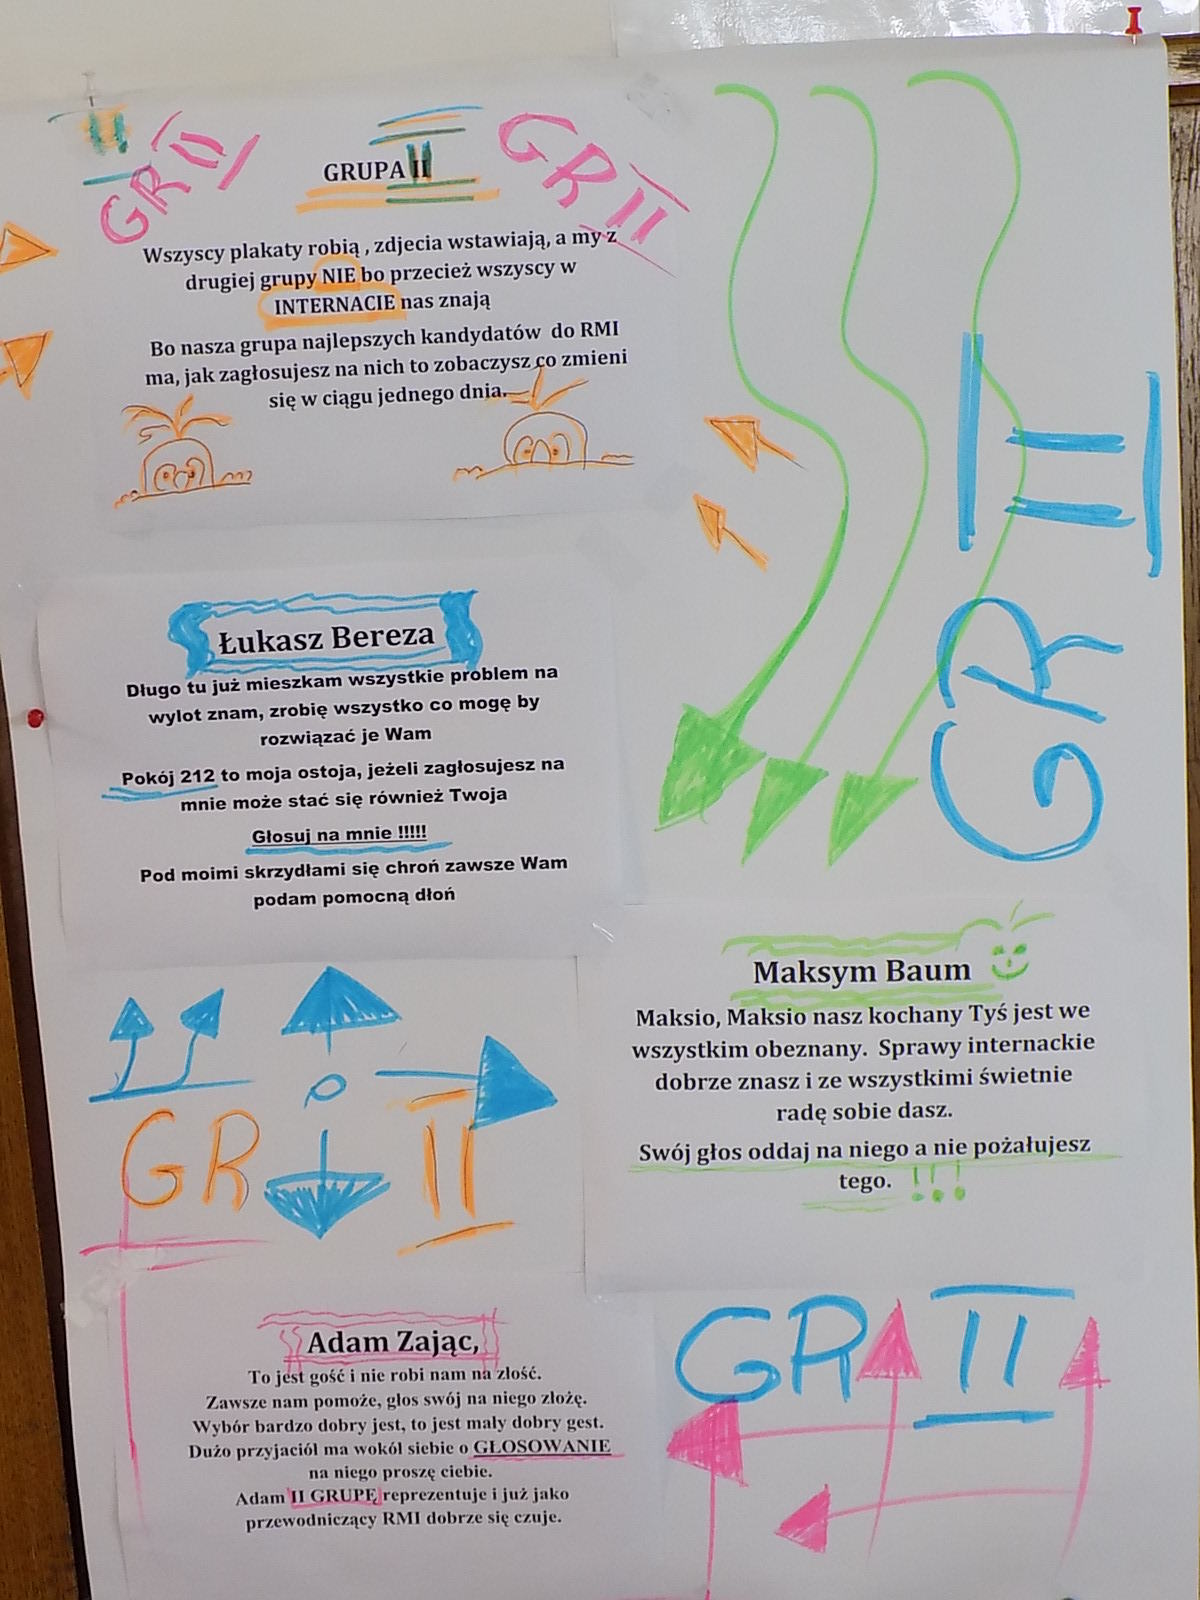 II
GR II
GRUPA II
GR II
Wszyscy plakaty robią , zdjecia wstawiają, a my z
drugiej grupy NIE bo przecież wszyscy w
INTERNACIE nas znają
Bo nasza grupa najlepszych kandydatów do RMI
ma, jak zagłosujesz na nich to zobaczysz co zmieni
się w ciągu jednego dnia.
GR II
Łukasz Bereza
Długo tu już mieszkam wszystkie problem na
wylot znam, zrobię wszystko co mogę by
rozwiązać je Wam
Pokój 212 to moja ostoja, jeżeli zagłosujesz na
mnie może stać się również Twoja
Głosuj na mnie !!!!!
Pod moimi skrzydłami się chroń zawsze Wam
podam pomocną dłoń
Maksym Baum
Maksio, Maksio nasz kochany Tyś jest we
wszystkim obeznany. Sprawy internackie
dobrze znasz i ze wszystkimi świetnie
radę sobie dasz.
Swój głos oddaj na niego a nie pożałujesz
tego. !!!
GR II
Adam Zając,
To jest gość i nie robi nam na złość.
Zawsze nam pomoże, głos swój na niego złożę.
Wybór bardzo dobry jest, to jest mały dobry gest.
Dużo przyjaciół ma wokół siebie o GŁOSOWANIE
na niego proszę ciebie.
Adam II GRUPĘ reprezentuje i już jako
przewodniczący RMI dobrze się czuje.
GR II